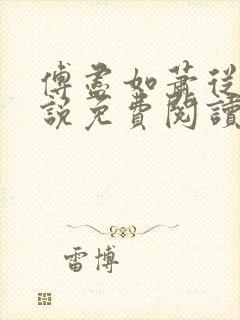 傅盡如蕭從
說免費閱讀
雷博